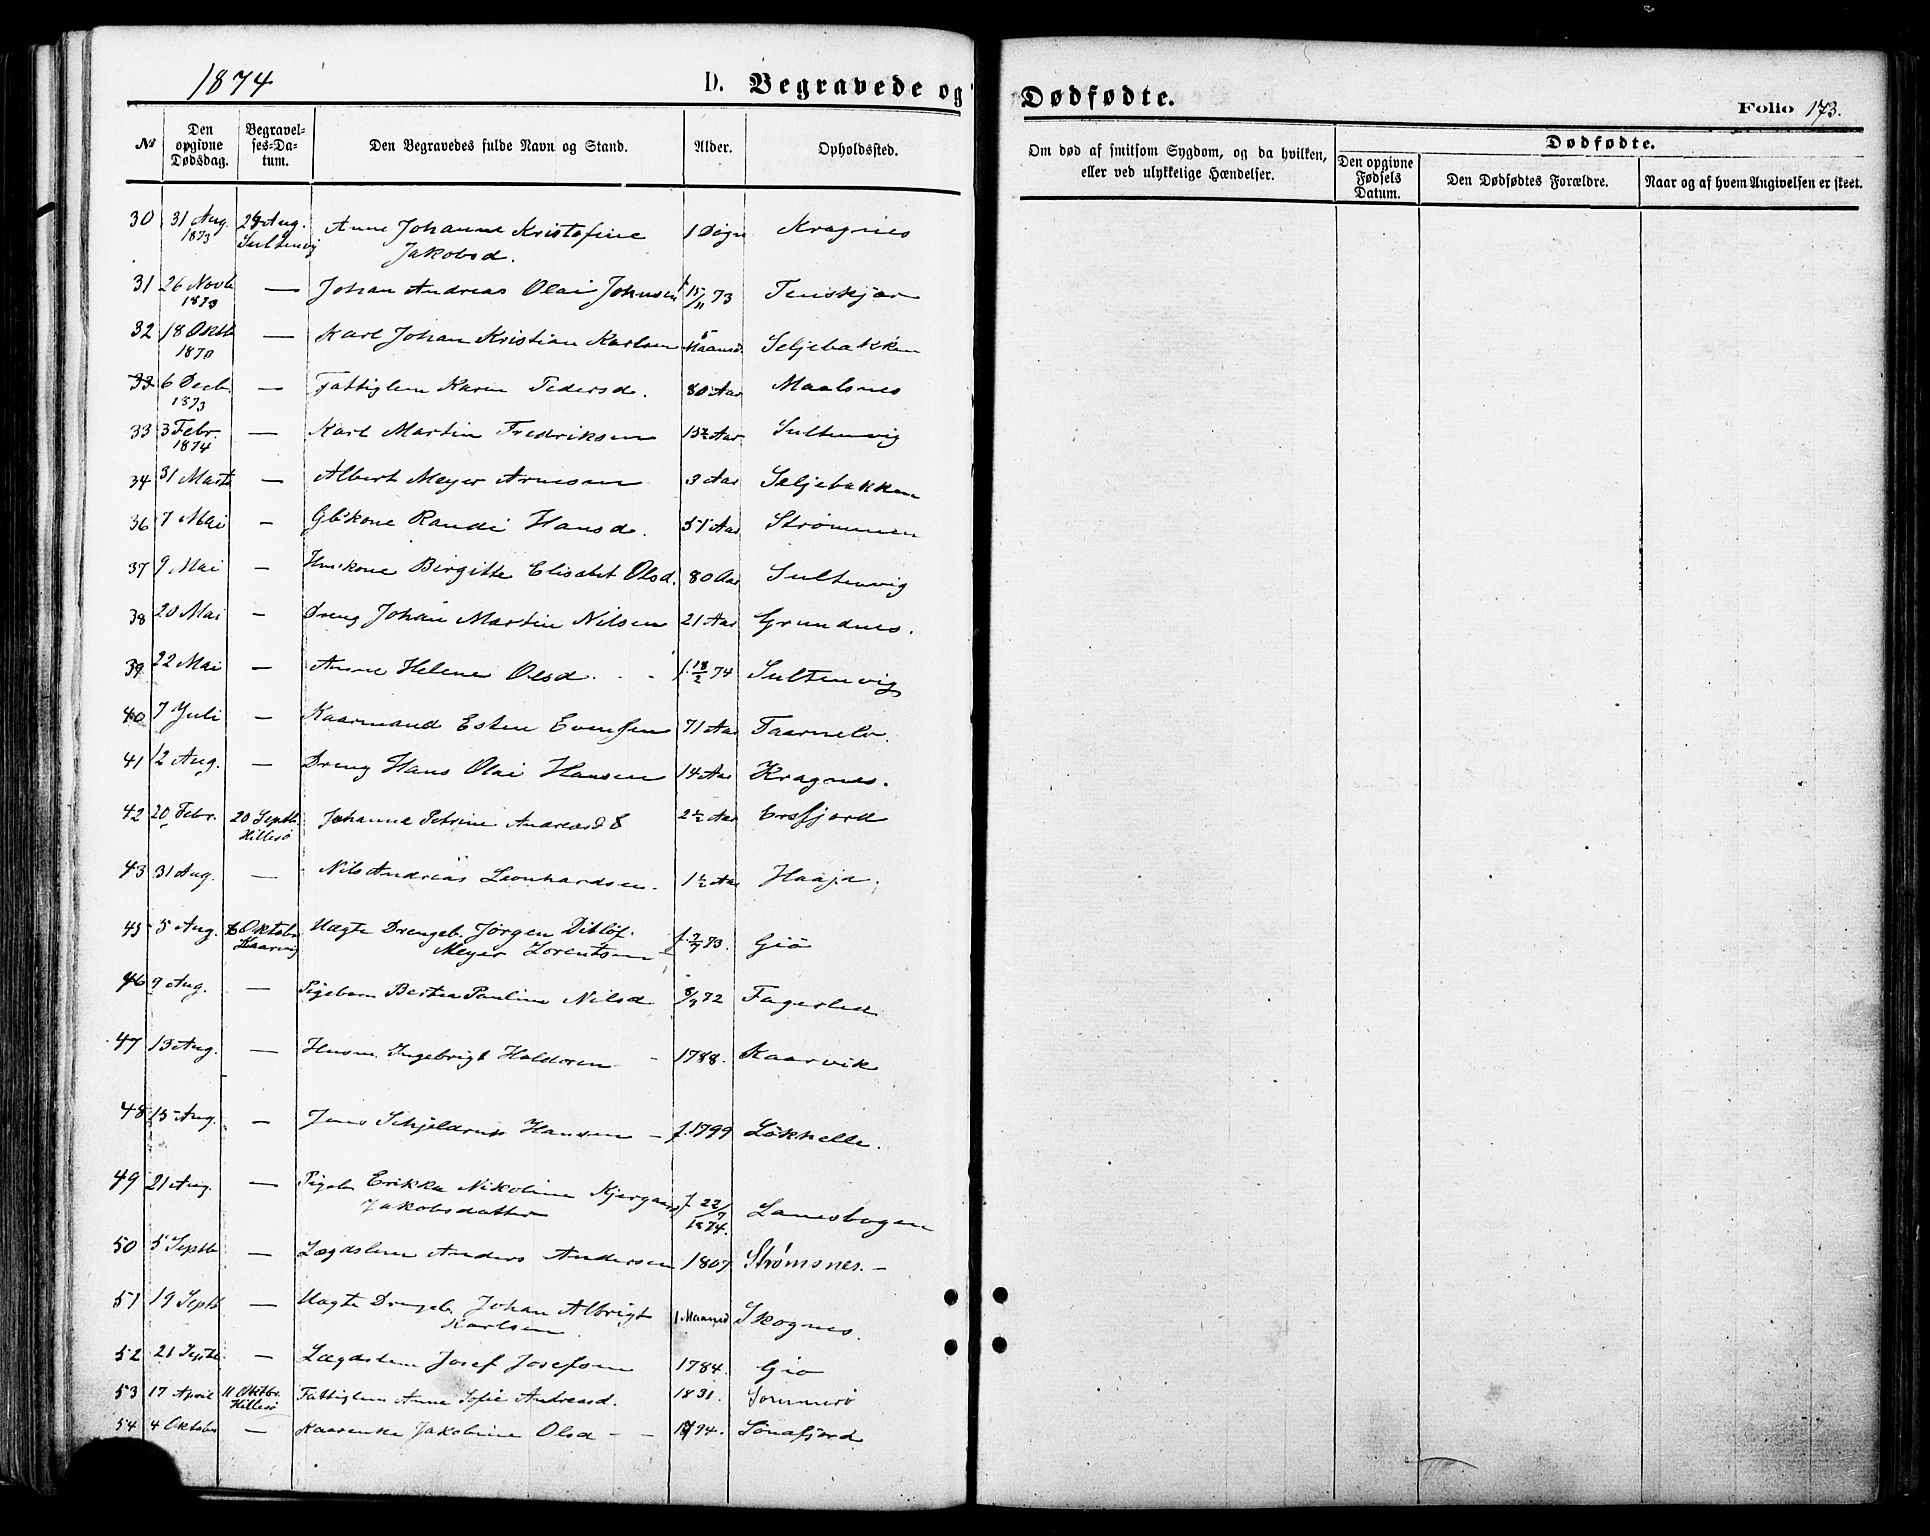 1874 D. Begravede og Dødfødte. Folio 173.
№ Den opgivne Dødsdag. Begravelses-Datum. Den Begravedes fulde Navn og Stand. Alder. Opholdssted. Om død af smitsom Sygdom, og da hvilken, eller ved ulykkelige Hændelser. Dødfødte. Den opgivne Fødsels Datum. Den Dødfødtes Forældre. Naar og af hvem Angivelsen er skeet.
30 31 Aug. 1873 Aug. Sultenvig Anne Johanna Kristofine 1 Døgn Kragnes
Jakobsd.
31 26 Novb 1873 — Johan Andreas Olai Johnsen f 15/11 73
32 18 Oktb 1870 — Karl Johan Kristian Karlsen 5 Maaned Seljebakken
33 6 Decb. 1873 — Fattiglem Karen Pedersd. 80 Aar Maalsnes
33 3 Febr. 1874 — Karl Martin Fredriksen Aar Sultenvig
34 31 Marts — Albert Meyer Arnesen 3 Aar Seljebakken
36 7 Mai — Gbkone Randi Hansd. 51 Aar Strømmen
37 9 Mai — Huskone Birgitte Elisabet Olsd. 80 Aar Sultenvig
38 20 Mai — Dreng Johan Martin Nilsen 21 Aar Grundnes.
39 22 Mai — Anne Helene Olsd. f. 18/2 74 Sultenvig
40 7 Juli — Kaarmand Esten Evensen 71 Aar Taarnelv.
41 12 Aug. — Dreng Hans Olai Hansen 14 Aar Kragnes.
42 20 Febr. 20 Septb. Hillesö Johanna Petrine Andreasd 2½ Aar Ersfjord
43 31 Aug. — Nils Andreas Leonhardsen. 1½ Aar Haaja
45 5 Aug. 6 Oktober Kaarvig Uægte Drengeb. Jørgen Ditlöf. f. 2/7 73. Giö
Meyer Lorentsen
46 9 Aug. — Pigebarn Berten Pauline Nilsd 8/3 72
47 13 Aug. — Husm. Ingebrigt Haldoren 1788. Kaarvik
48 15 Aug. — Jens Schjeldrup Hansen — f. 1799 Lökhelle.
49 21 Aug. — Pigeb. Erikka Nikoline Kjergaard f. 22/7 1874. Lanesbogen
Jakobsdatter
50 5 Septb — Lægdslem Anders Andersen 1807 Strømsnes. —
51 19 Septb — Uægte Drengeb. Johan Albrigt 1 Maaned Skognes.
Karlsen
52 21 Septb. — Lægdslem Josef Josefsen 1784. Gio
53 17 April 11 Oktbr. Hillesö Fattiglem Anne Sofie Andreasd. 1831. Sommerö
54 4 Oktober — Kaarenke Jakobine Olsd — — 1794. Sönafjord